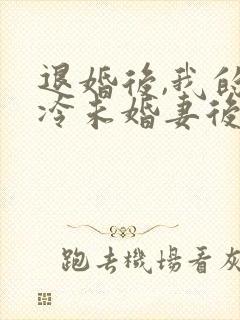 退婚後,我的
冷未婚妻後
跑去機場看灰